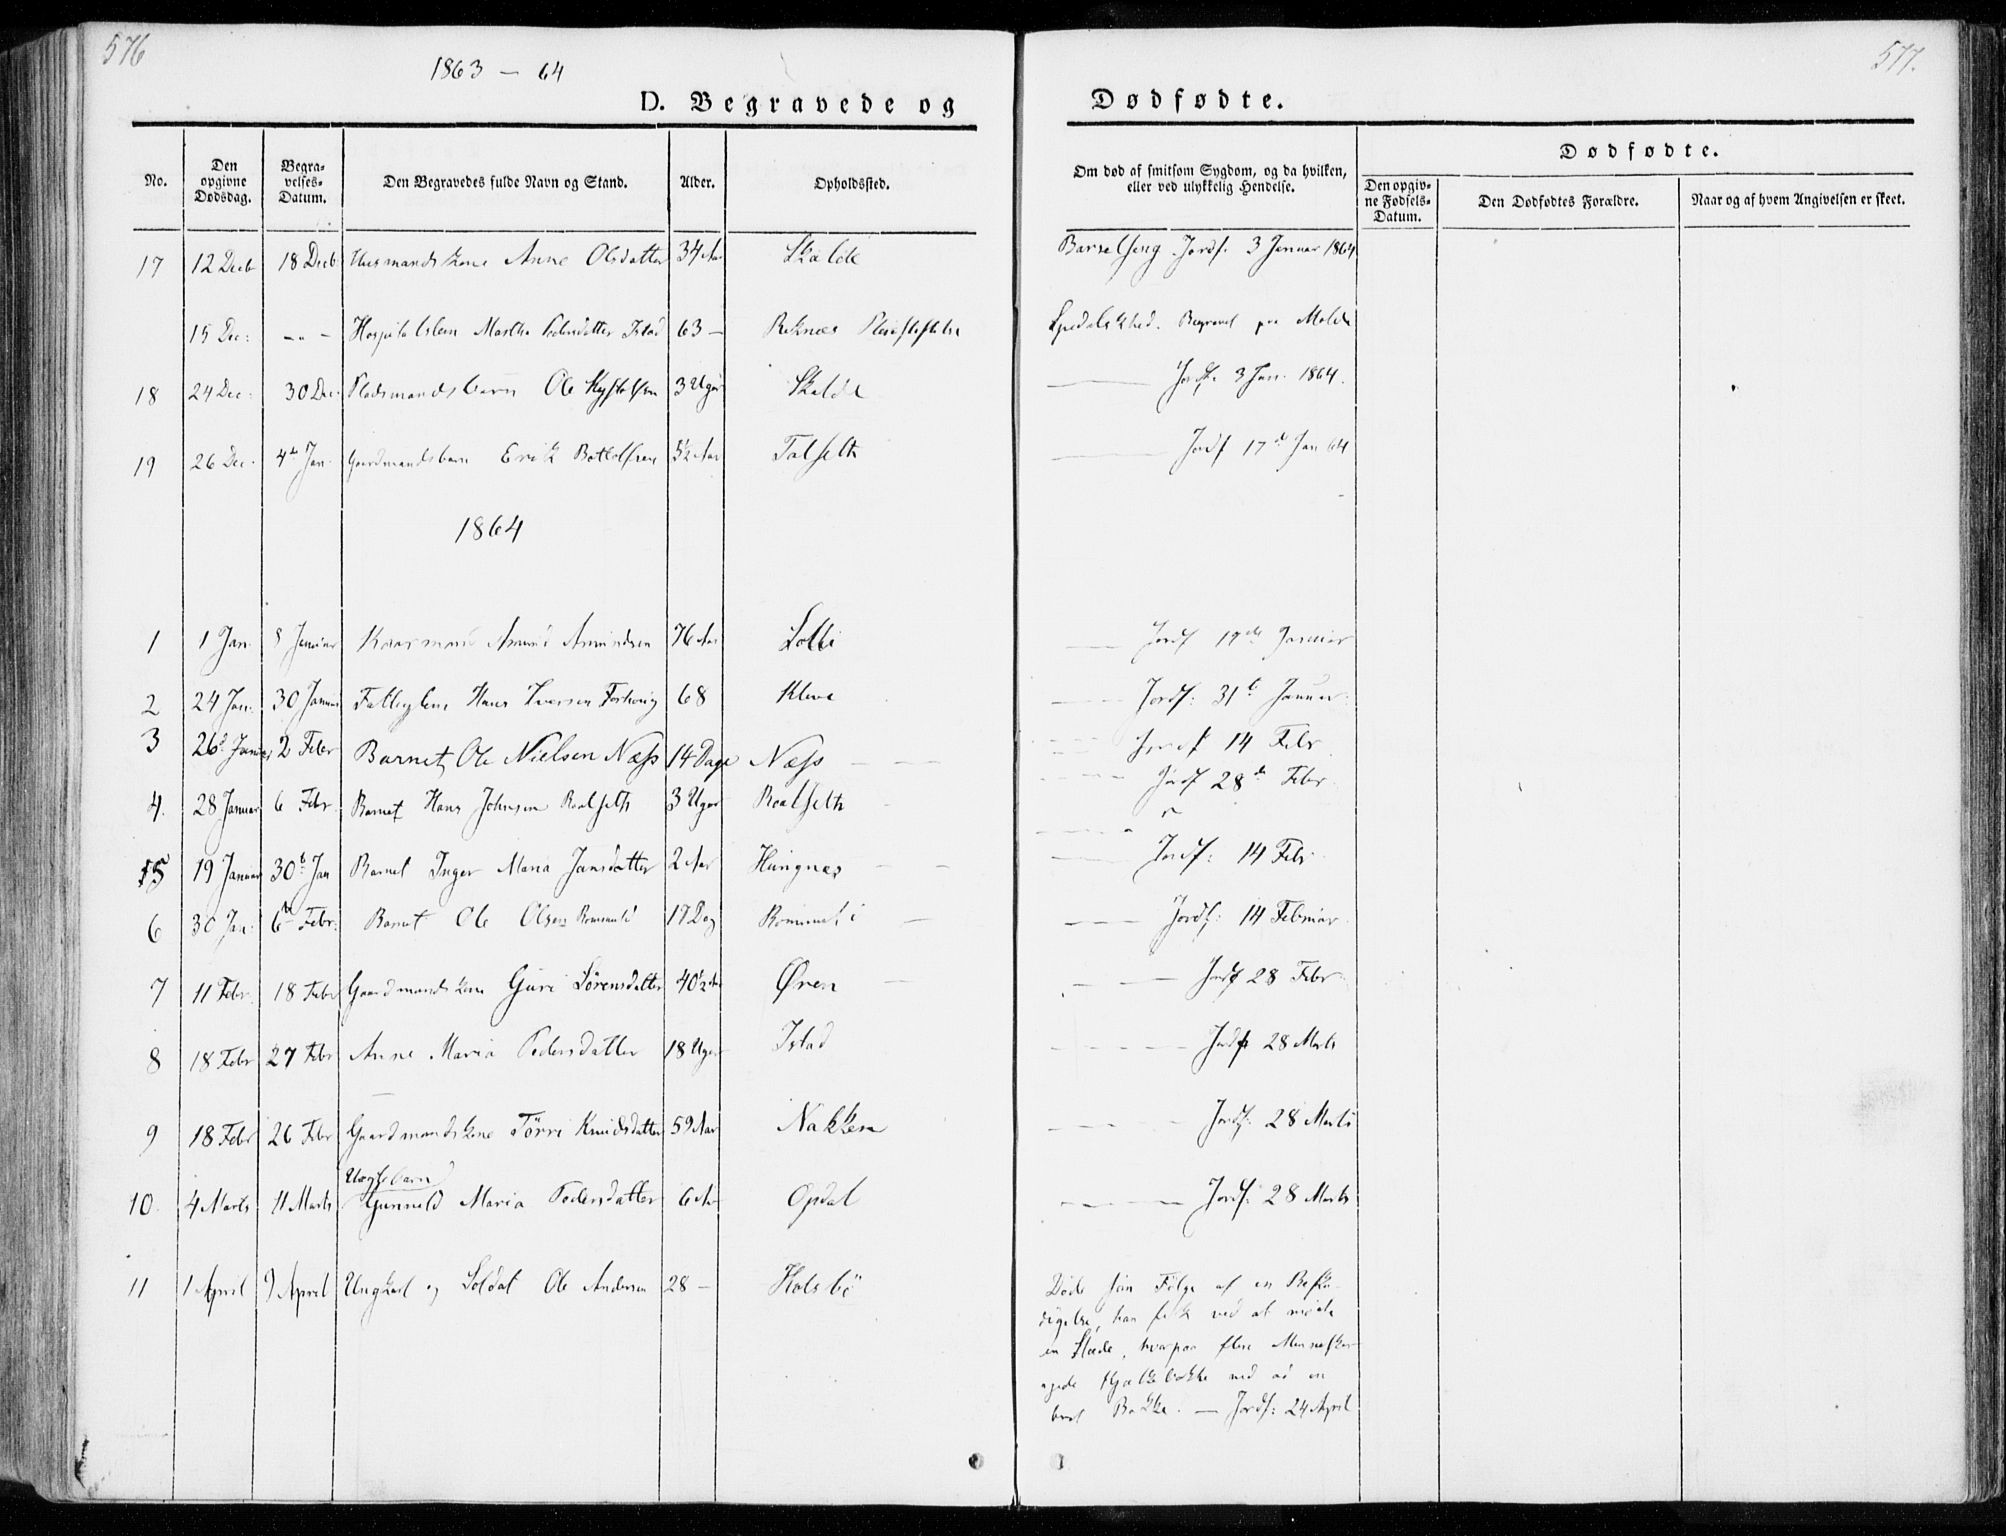 576
577.
1863 – 64
D. Begravede og
Dødfødte.
No.
Den opgivne Dødsdag.
Begra-velses-Datum.
Den Begravedes fulde Navn og Stand.
Alder.
Opholdssted.
Om død af smitsom Sygdom, og da hvilken, eller ved ulykkelig Hendelse.
Dødfødte.
Den opgiv-ne Fødsels-Datum.
Den Dødfødtes Forældre.
Naar og af hvem Angivelsen er skeet.
17 12 Decb 18 Decb Husmandskone Anne Olsdatter 34 Aar Skalde Barselseng Jordf. 3 Januar 1864
15 Dec: - „ - Hospitalslem Marthe Pedersdatter Istad 63 — Reknæs Pleiestiftelse Spedalskhed. Begravet paa Molde
18 24 Dec: 30 Dec. Pladsmandsbarn Ole 3 Uger Skalde Jordf. 3 Jan. 1864.
19 26 Dec. 4de Jan. Gaardmandsbarn Erik Bottolfsen 5½ Aar Talseth Jordf 17de Jan 64
1864
1 1 Jan. 8 Januar Amund Amundsen 76 Aar Solli Jordf 17de Januar
2 24 Jan. 30 Januar Fattiglem Hans Iversen 68 Kleve Jordf: 31te Januar.
3 26d Januar 2 Febr Barnet Ole Nielsen Næss 14 Dage Næss — — Jordf 14 Febr
4. 28 Januar 6 Febr. Barnet Hans Johnsen Roalseth 3 Uger Roalseth Jordf 28de Febr.
5 19 Januar 30te Jan Barnet Inger Maria Jansdatter 2 Aar Hungnæs — — Jordf: 14 Febr
6 30 Jan: 6te Febr: Barnet Ole Olsen 17 Dag Jordf: 14 Februar.
7 11 Febr. 18 Febr Gaardmandskone Guri Sörensdatter 40½ Aar Øren — Jordf 28 Febr.
8 18 Febr 27 Febr Anne Maria Pedersdatter 18 Uger Istad Jordf 28 Marts
9 18 Febr 26 Febr Gaardmandskone Törri Knudsdatter 59 Aar Nakken Jordf: 28 Marts
Uægtebarn
10. 4 Marts 11 Marts Gunnild Maria Pedersdatter 6 Aar Opdal Jordf: 28 Marts
11 1 April 9 April Ungkarl og Soldat Ole Andersen 28 — Holsbö Döde som Fölge af en Beska-
digelse, han fik ved at möde
en Slæde, hvorpaa flere Mennesker
agede ned ad en
brat Bakke. — Jordf: 24 April